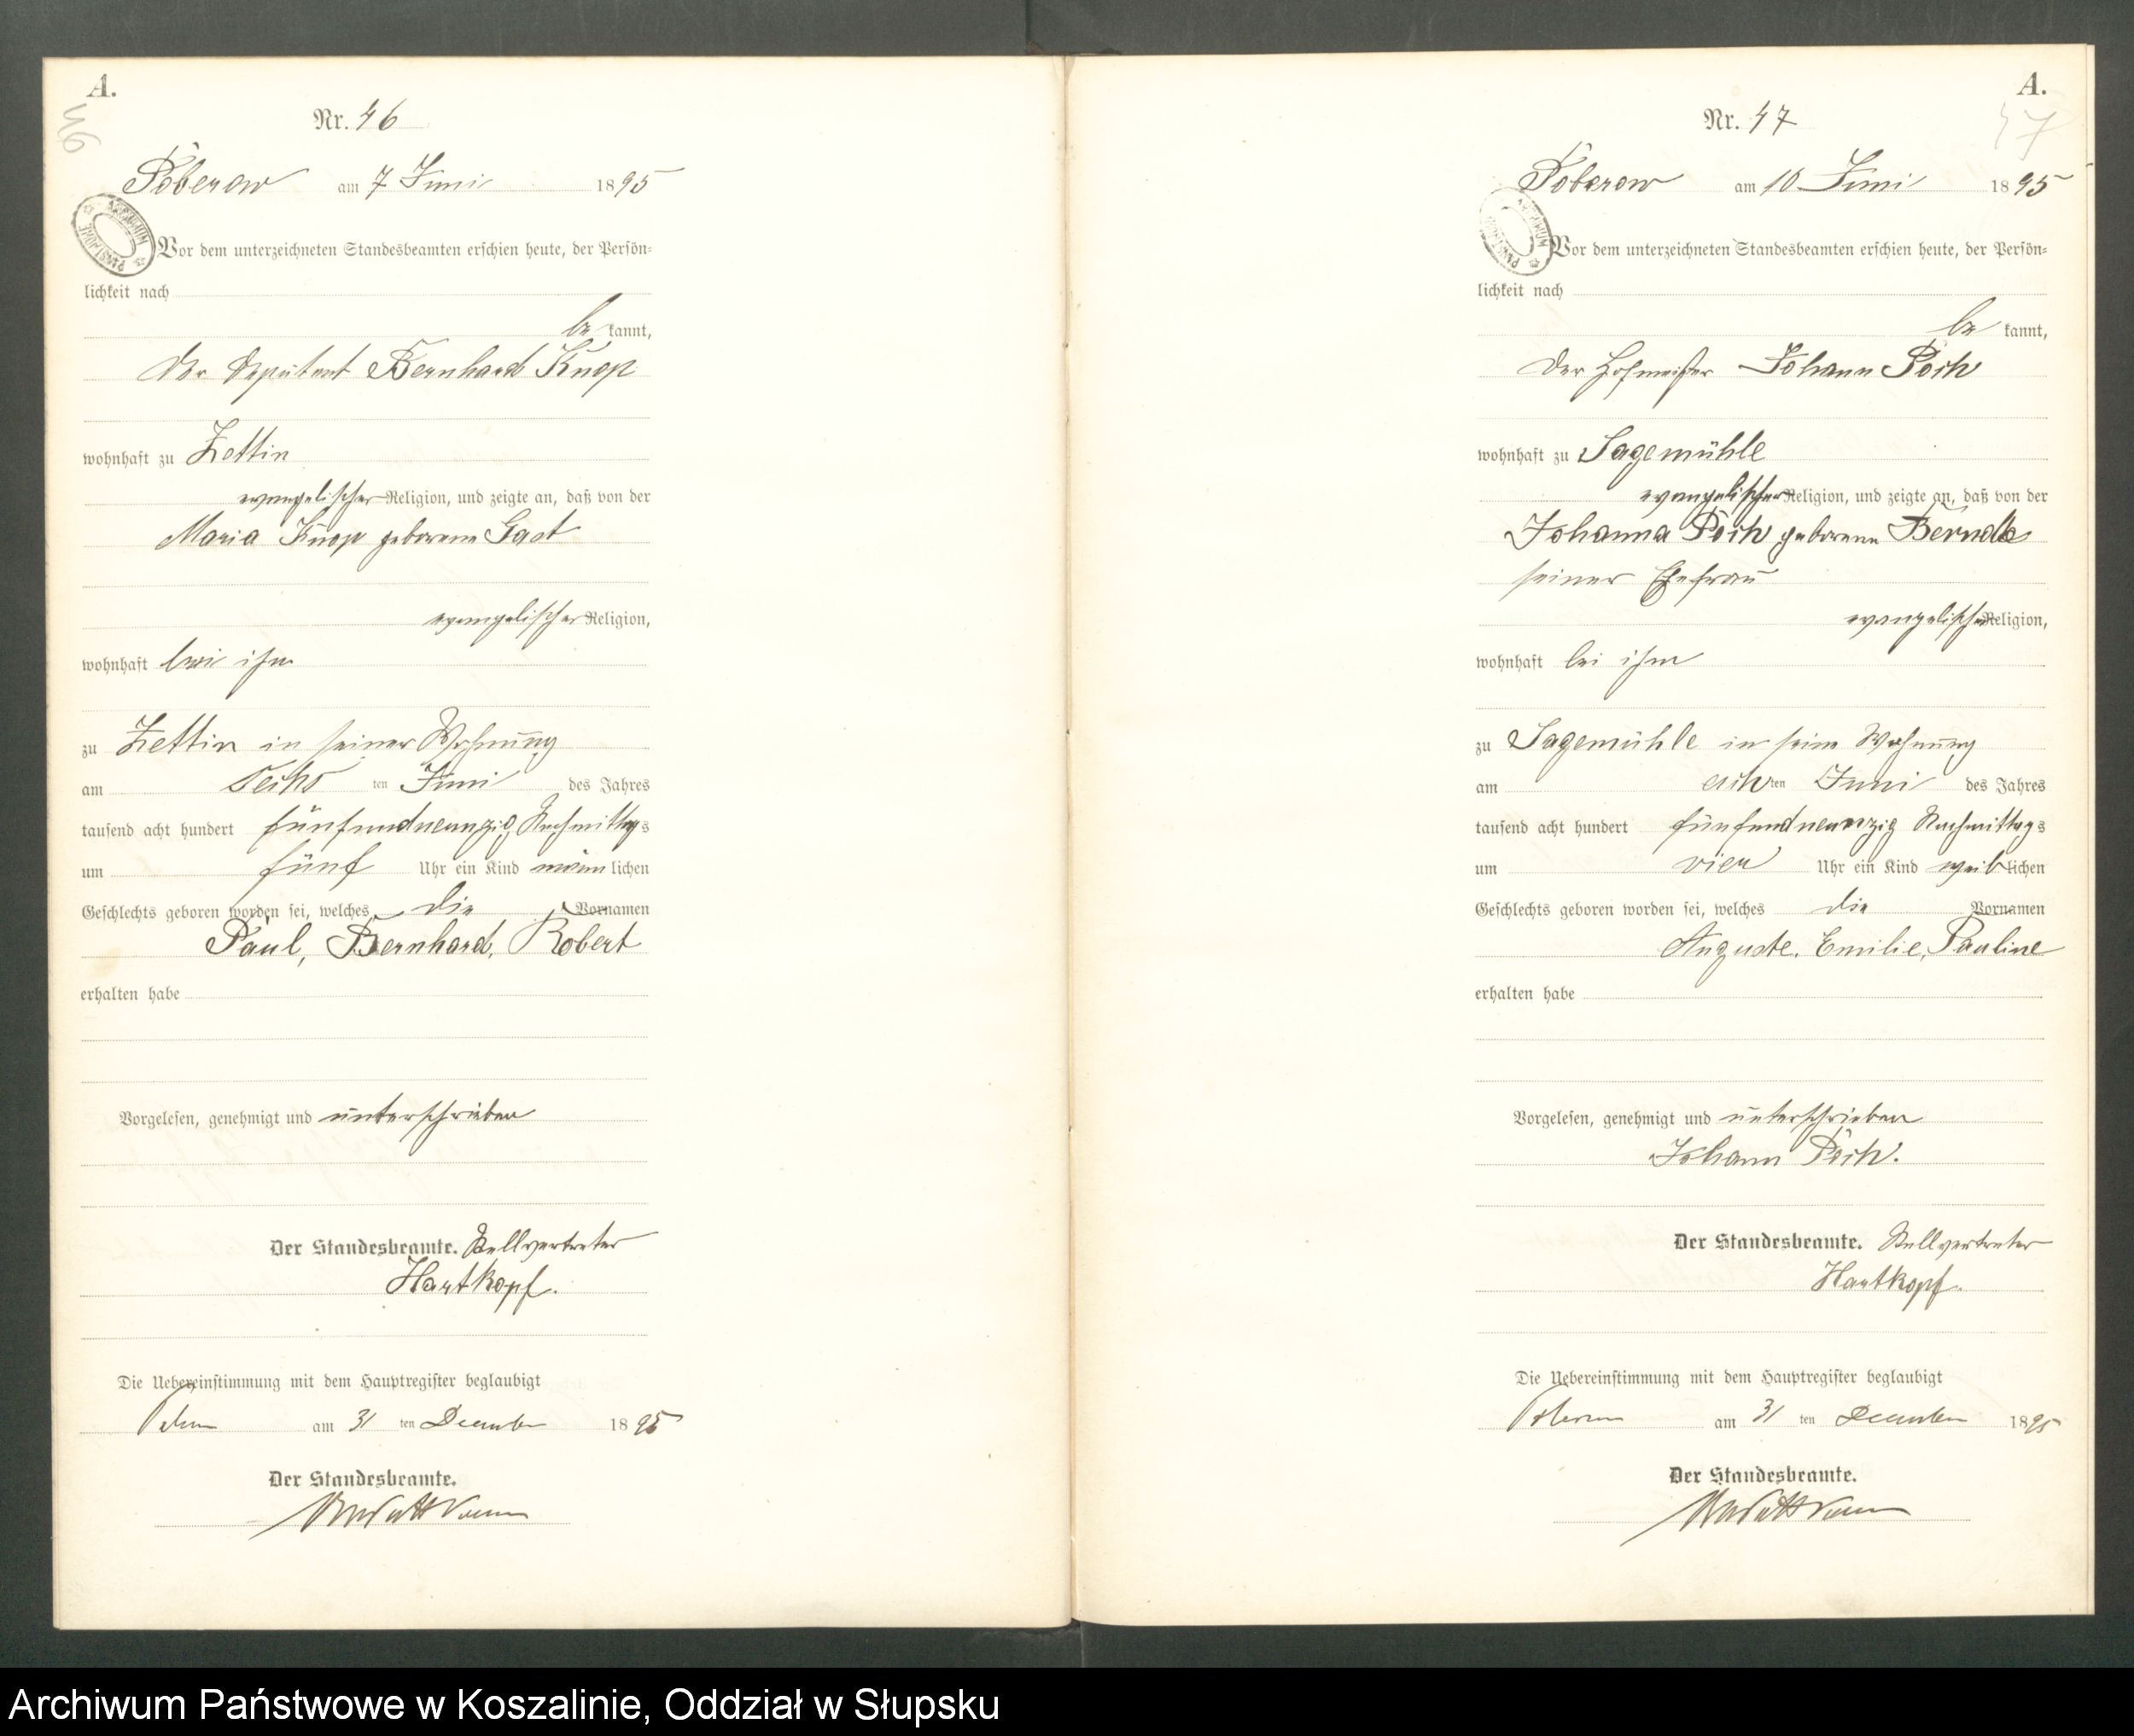 A.
46
Nr. 46
Poberow am 7 Juni 1895
Vor dem unterzeichneten Standesbeamten erschien heute, der Persön=
lichkeit nach
be kannt,
der Deputant Bernhard Knop
wohnhaft zu Zettin
evangelischer Religion, und zeigte an, daß von der
Maria Knop geborene Gast
evangelischer Religion,
wohnhaft bei ihm
zu Zettin in seiner Wohnung
am sechs ten Juni des Jahres
tausend acht hundert fünfundneunzig Nachmittags
um fünf Uhr ein Kind männlichen
Geschlechts geboren worden sei, welches die Vornamen
Paul, Bernhard, Robert
erhalten habe
Vorgelesen, genehmigt und unterschrieben
Der Standesbeamte. Stellvertreter
Hartkopf.
Die Uebereinstimmung mit dem Hauptregister beglaubigt
am 31 ten December 1895
Der Standesbeamte.
A.
47
Nr. 47
Poberow am 10 Juni 1895
Vor dem unterzeichneten Standesbeamten erschien heute, der Persön=
lichkeit nach
be kannt,
Der Hofmeister Johann Poch
wohnhaft zu Sagemühle
evangelischer Religion, und zeigte an, daß von der
Johanna Poch geborene Berndt
seiner Ehefrau
evangelischer Religion,
wohnhaft bei ihm
zu Sagemühle in seine Wohnung
am achten Juni des Jahres
tausend acht hundert fünfundneunzig Nachmittags
um vier Uhr ein Kind weiblichen
Geschlechts geboren worden sei, welches die Vornamen
Auguste, Emilie, Pauline
erhalten habe
Vorgelesen, genehmigt und unterschrieben
Johann Poch.
Der Standesbeamte. Stellvertreter
Hartkopf.
Die Uebereinstimmung mit dem Hauptregister beglaubigt
am 31 ten December 1895
Der Standesbeamte.
Archiwum Państwowe w Koszalinie, Oddział w Słupsku